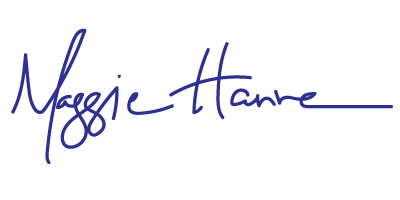 Maggie Hanne